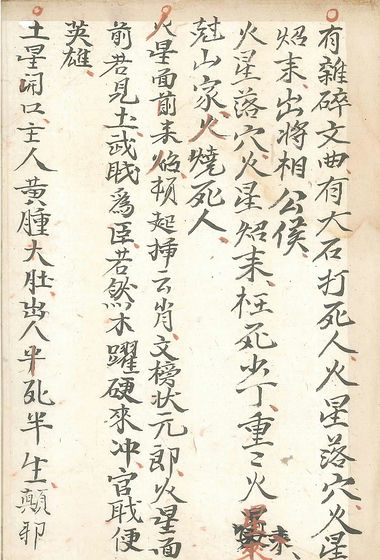 有雜碎文曲有大石打死人火星落穴火星
炤来出將相公侯
火星落穴火星炤来枉死少丁重〻火星来
尅山家火燒死人
火星面前来焰頓起挿云肖文榜状元即火星面
前若見土武职為臣若然木躍硬來冲官戝便
英雄
土星開口主人黄腫大肚出人半死半生顛邪